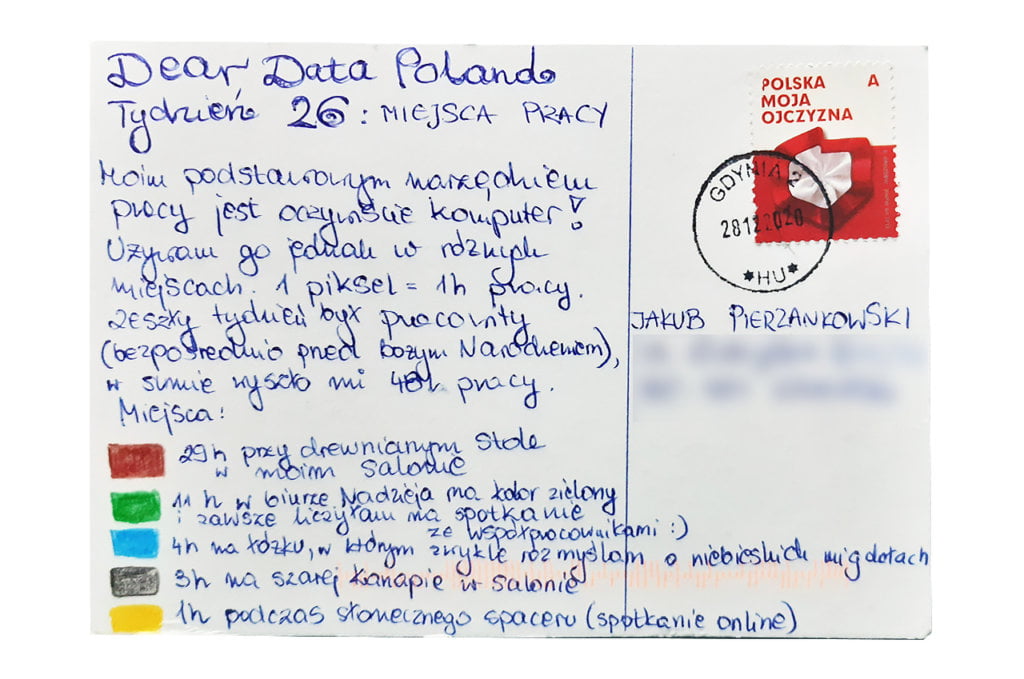 Dear Data Poland
Tydzień 26: MIEJSCA PRACY
Moim podstawowym narzędziem
pracy jest oczywiście komputer!
Używam go jednak w różnych
miejscach. 1 piksel = 1h pracy.
Zeszły tydzień był pracowity
(bezpośrednio przed Bożym Narodzeniem),
w sumie wyszło mi 48h pracy.
Miejsca:
29h przy drewnianym stole
w moim salonie
11h w biurze Nadzieja ma kolor zielony
i zawsze liczyłam na spotkanie
ze współpracownikami :)
4h na łóżku, w którym zwykle rozmyślam o niebieskich migdałach
3h na szarej kanapie w salonie
1h podczas słonecznego spaceru (spotkanie online)
POLSKA A
MOJA
OJCZYZNA
GDYNIA 2
28122020
*HU*
JAKUB PIERZANKOWSKI